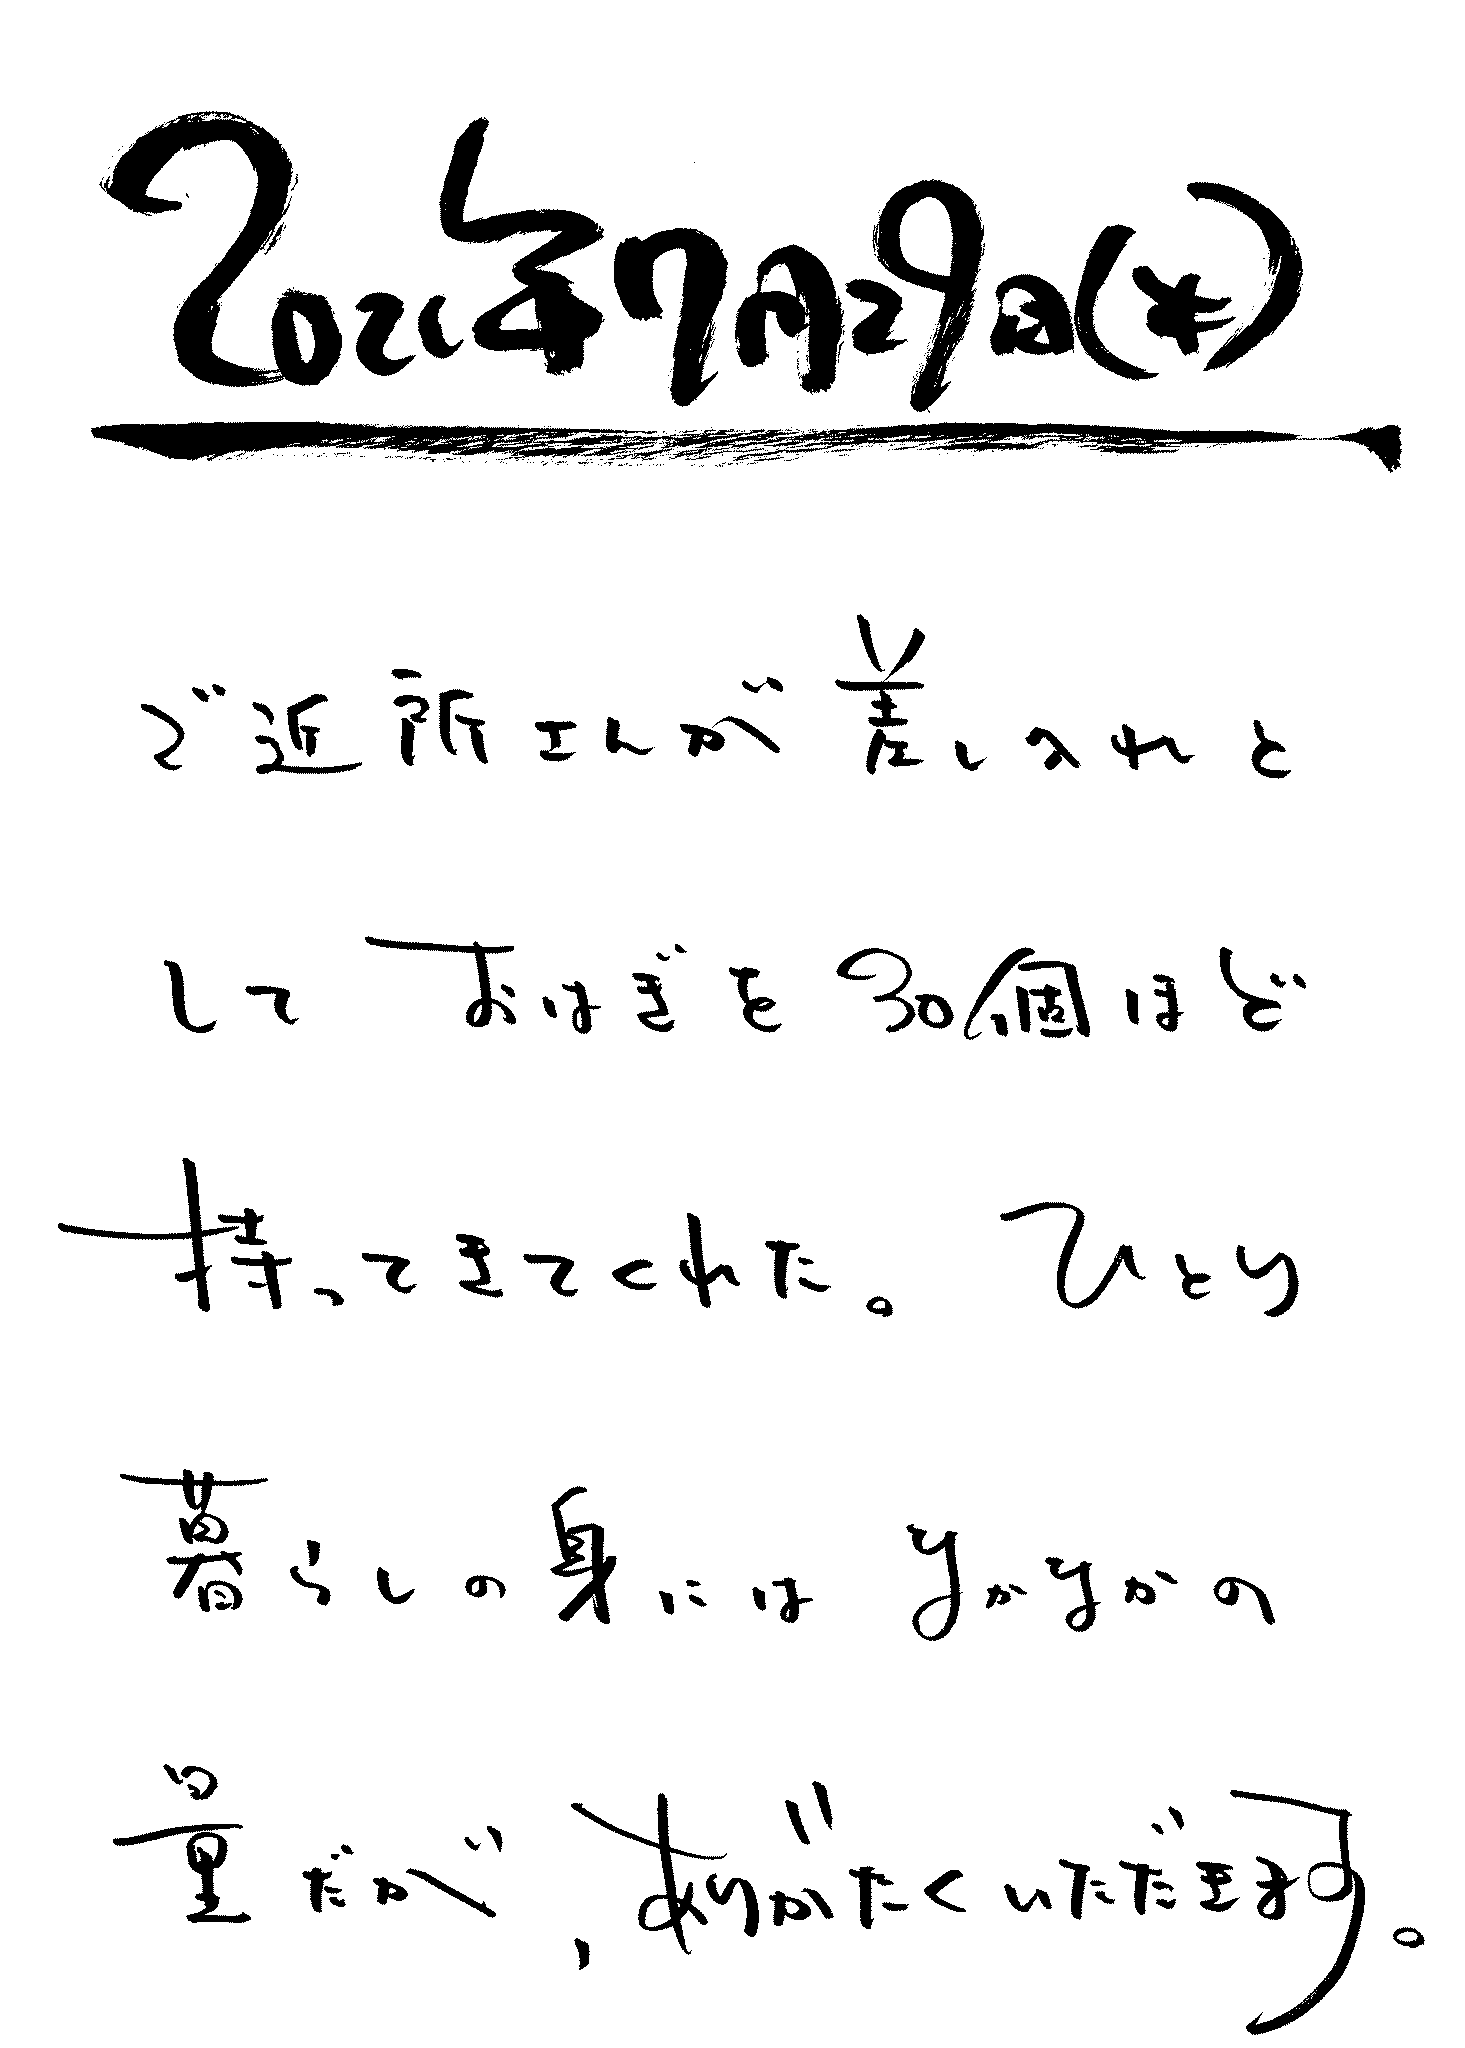 2021年7月29日(木)
ご近所さんが差し入れと
して おはぎを30個ほど
持ってきてくれた。 ひとり
暮らしの身には なかなかの
量だが、ありがたくいただきます。